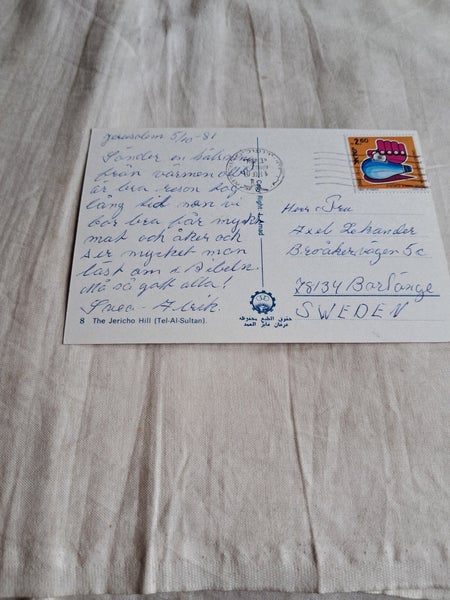 Jerusalem 5/10-81
Sänder en hälsning
från varmen allt
är bra resan tog
lång tid men vi
bor bra får mycket
mat och åker och
ser mycket man
läst om i Bibeln.
Må så gott alla!
8 The Jericho Hill (Tel-Al-Sultan).
حقوق الطبع محفوظة
2.60
Herr o Fru
Axel Zakander
Broåkervägen 5c
78134 Borlänge
SWEDEN